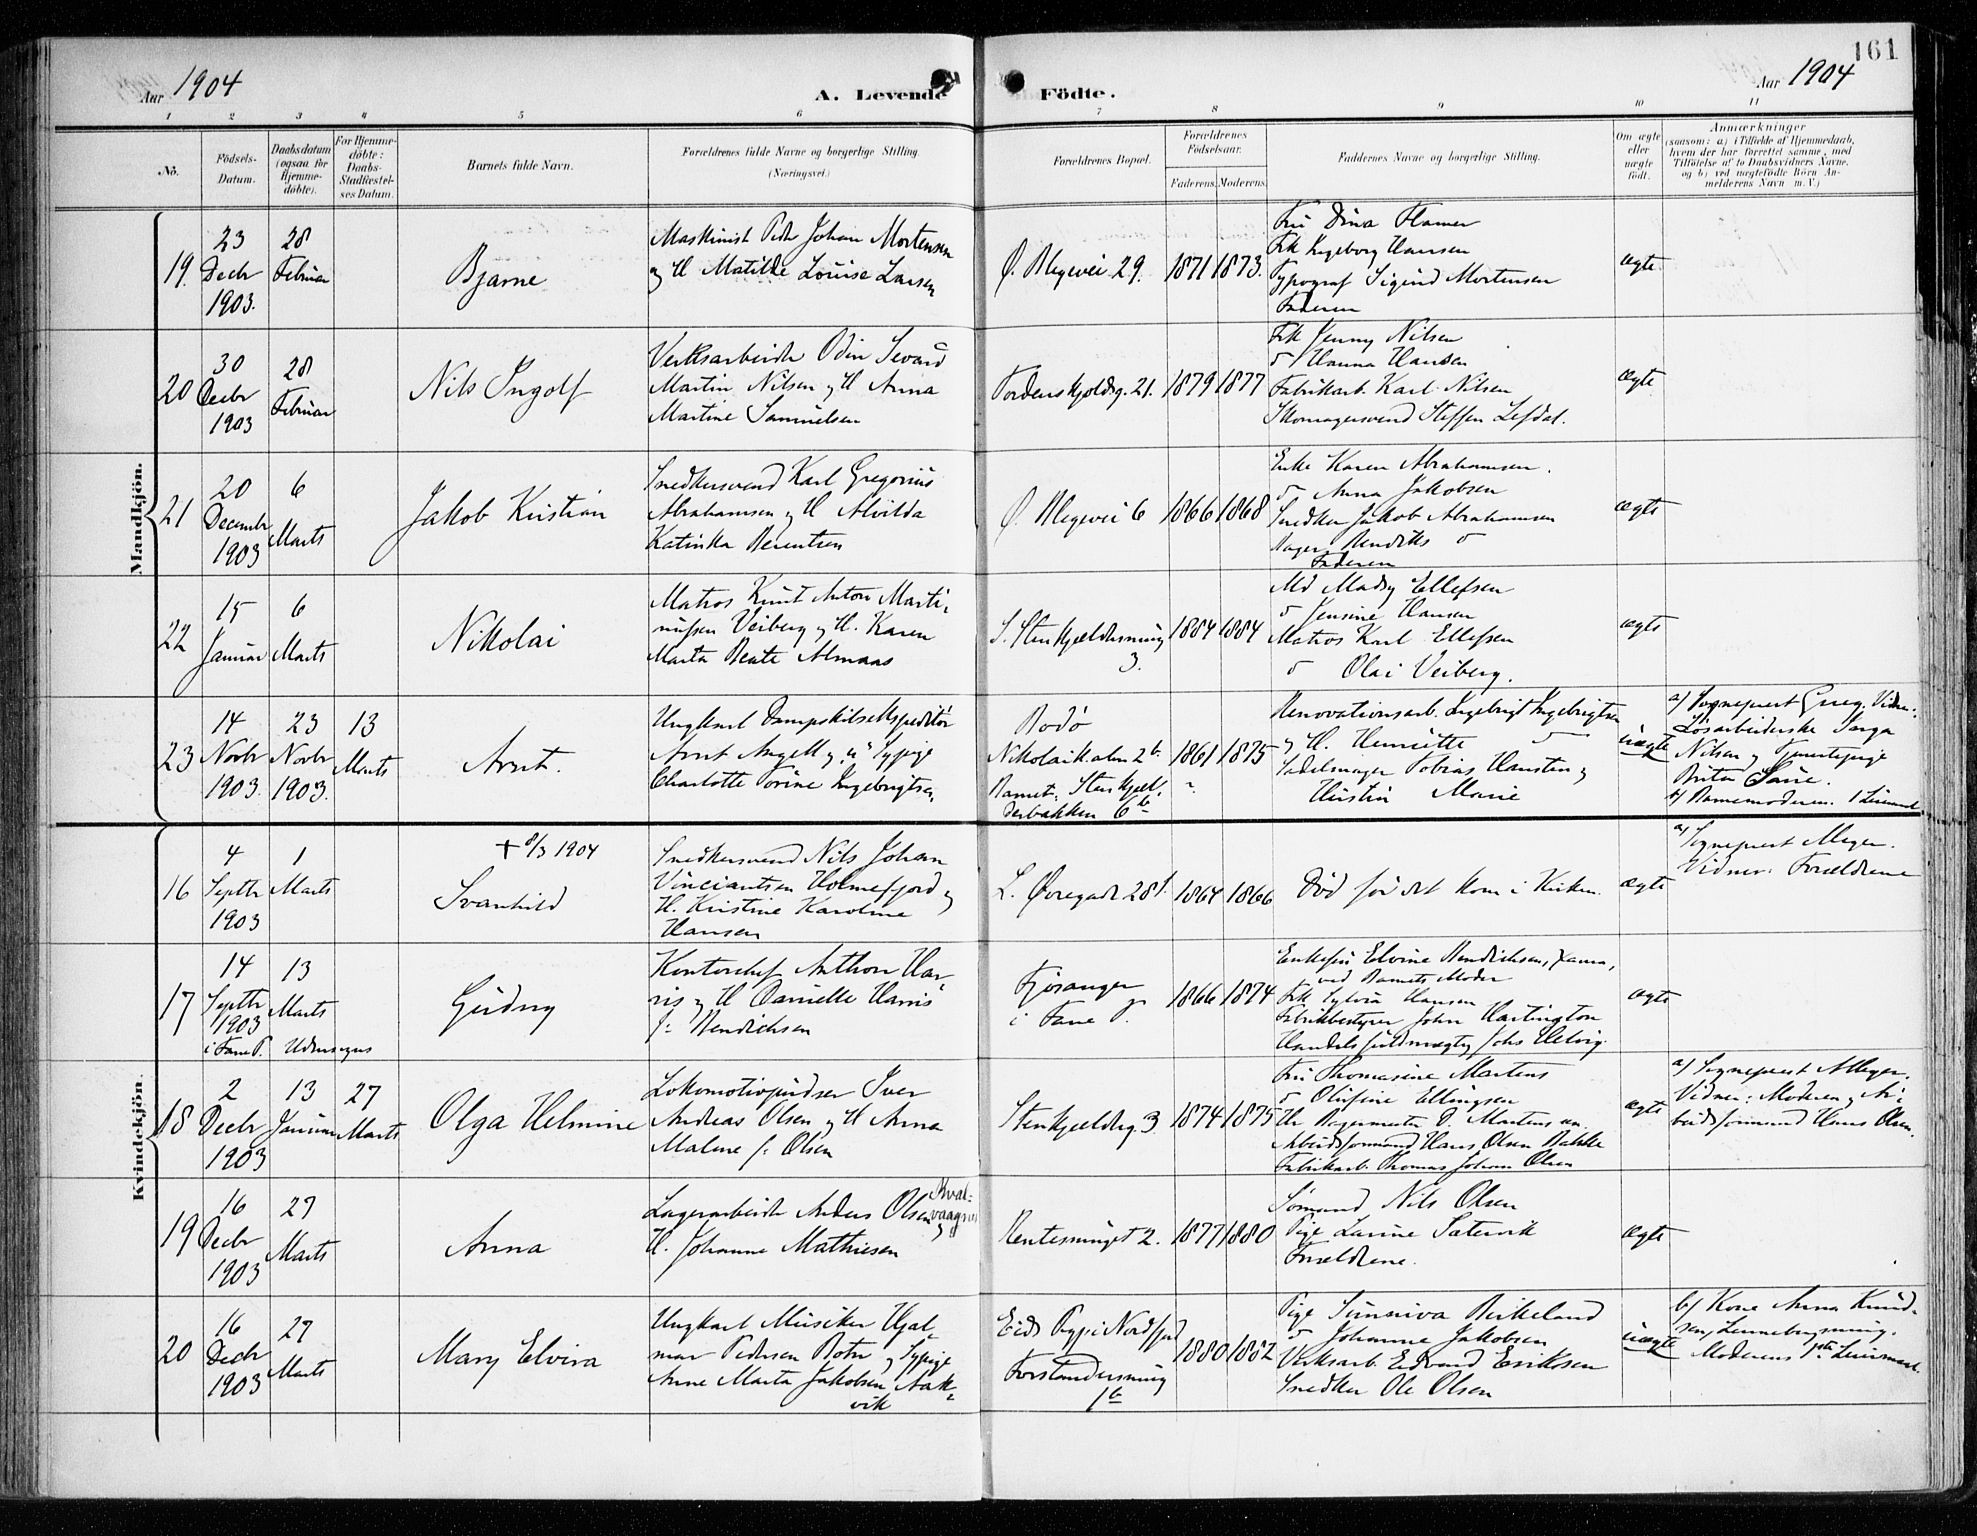 161
Aar 1904
A. Levende
Födte.
Aar 1904
1 2 3 4 5 6 7 8 9 10 11
No.
Födsels-
Datum.
Daabsdatum
(ogsaa for
Hjemme-
döbte).
For Hjemme-
döbte:
Daabs-
Stadfæstel-
ses Datum.
Barnets fulde Navn.
Forældrenes fulde Navne og borgerlige Stilling.
(Næringsvei.)
Forældrenes Bopæl.
Forældrenes
Födselsaar.
Faderens.
Moderens.
Faddernes Navne og borgerlige Stilling.
Om ægte
eller
uægte
födt.
Anmærkninger
(saasom: a) i Tilfælde af Hjemmedaab,
hvem der har forrettet samme, med
Tilföielse af to Daabsvidners Navne,
og b) ved uægtefödte Börn An-
melderens Navn m. V.)
Mandkjön.
19.
23
Decbr
1903.
28
Februar
Bjarne
Maskinist Peder Johan Mortensen
og H Matilde Louise Larsen
Ø. Blegevei 29.
1871
1873.
Fru Dina Flamer
Frk Ingeborg Hansen
Typograf Sigurd Mortensen
Faderen
ægte
20
30
Decbr
1903
28
Februar
Nils Ingolf
Verksarbeider Odin Sevard
Martin Nilsen og H Anna
Martine Samuelsen
Tordenskjoldsg. 21.
1879
1877
Frk Jenny Nilsen
Hanna Hansen
Fabrikarb. Karl Nilsen
Skomagersvend Steffen Lefdal.
ægte
21
20
Decembr
1903
6
Marts
Jakob Kristian
Snedkersvend Karl Gregorius
Abrahamsen og H Alvilda
Katinka Berentsen
Ø. Blegevei 6
1866
1868
Enke Karen Abrahamsen.
Anna Jakobsen
Snedker Jakob Abrahamsen
Bager Bendiks
Faderen
ægte
22
15
Januar
6
Marts
Nikolai
Matros Knut Anton Marti-
nussen Veiberg og H. Karen
Marta Beate Almaas
S. Stenkjeldersmug
3.
1884
1884
Md Madsy Ellefsen
Jensine Hansen
Matros Karl Ellefsen
Olai Veiberg.
ægte
23
14
Novbr
1903.
23
Novbr
1903.
13
Marts
Arnt.
Ungkarl Dampskibsekspeditør
Arnt Angell og Sypige
Charlotte Torine Ingebrigtsen
Bodö
Nikolaikalm 2b
Barnet: Stenkjel-
derbakken 6b
1861
?
1875
Renovationsarb. Ingebrigt Ingebrigtsen
og H. Henriette
Sadelmager Tobias Hansten og
Hustru Marie
uægte
a) Sognepræst Grieg. Vidner:
Løsarbeiderske Inga
Nilsen og Tjenestepige
Brita
b) Barnemoderen.
Kvindekjön.
16
4
Septbr
1903
1
Marts
+ 8/3 1904
Svanhild
Snedkersvend Nils Johan
Vinciantsen Holmefjord og
H. Kristine Karoline
Hansen
L. Øvregade 28
1864
1866
Död för det kom i Kirken.
ægte
a) Sognepræst Meyer.
Vidner: Forældrene
17
14
Septbr
1903
i Fane P.
13
Marts
Udensogns
Gudny
Kontorchef Anthon Har-
ris og H Danielle Harris
f: Hendrichsen
Fjösanger
i Fane P.
1866
1874
Enkefru Elvine Hendrichsen,
ved Barnets Moder
Frk Sylvia Hansen
Fabrikbestyrer John Hartington
Handelsfuldmægtig Johs Helvig
ægte
18
2
Decbr
1903
13
Januar
27
Marts
Olga Helmine
Lokomotivpudser Iver
Andreas Olsen og H Anna
Malene f: Olsen
Stenkjelderg. 3
1874
1875
Fru Thomasine Martens
Olufine Ellingsen
Hr Bagermester D. Martens
Arbeidsformand Hans Olsen Bakke
Fabrikarb. Thomas Johan Olsen
ægte
a) Sognepræst Meyer.
Vidner: Moderen og Ar-
beidsformand Hans Olsen.
19
16
Decbr
1903
27
Marts
Anna
Lagerarbeider Anders Olsen Kval-
vaagnes og
H. Johanne Mathiesen
Rentesmuget 2.
1877
1880
Sömand Nils Olsen
Pige Larine Sætervik
Forældrene.
ægte
20
16
Decbr
1903
27
Marts
Mary Elvira
Ungkarl Musiker Hjal-
mar Pedersen Boto og Sypige
Anne Marta Jakobsen Aak-
vik
Eids Pgj i Nordfjord
Forstandersmug
1b
1880
1882
Pige Sunniva Birkeland
Johanne Jakobsen
Verksarb. Edvard Eriksen
Snedker Ole Olsen
uægte
b) Kone Anna Knud-
sen,
Moderens 1ste Leiermaal.